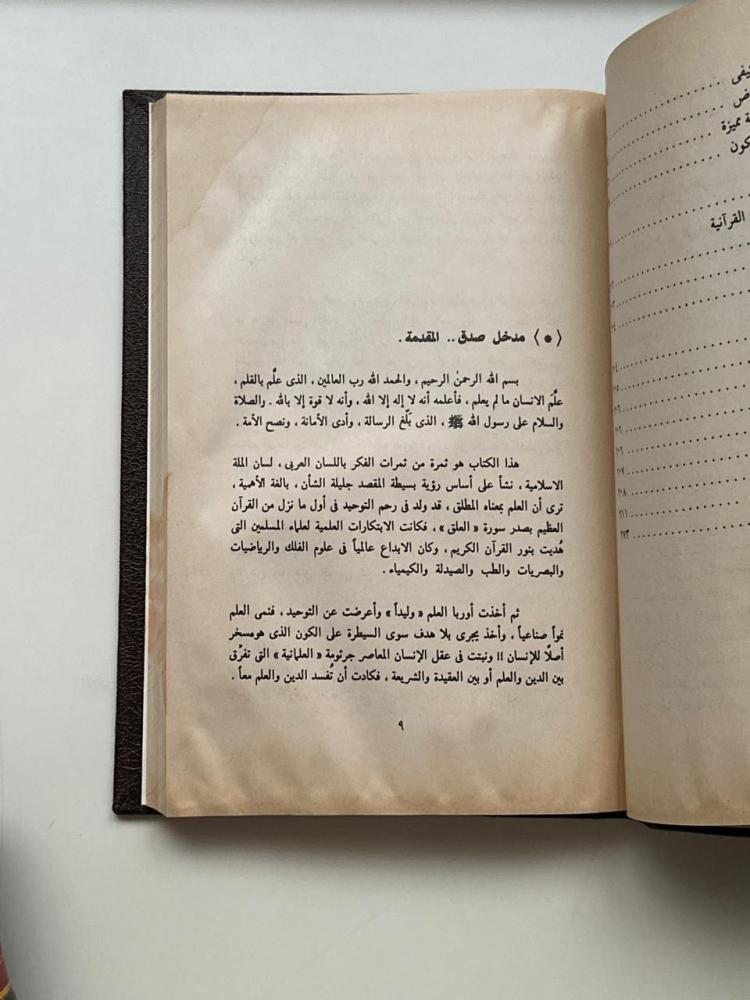 يفى
ض
ة مميزة
كون
القرآنية
٢٠٧
٢٠٨
٢١١
٢٧٣
⟨●⟩ مدخل صدق .. المقدمة .
بسم الله الرحمن الرحيم ، والحمد الله رب العالمين ، الذى علَّم بالقلم ،
علَّم الانسان ما لم يعلم ، فأعلمه أنه لا إله إلا الله ، وأنه لا قوة إلا بالله . والصلاة
والسلام على رسول الله ﷺ ، الذى بلّغ الرسالة ، وأدى الأمانة ، ونصح الأمة .
هذا الكتاب هو ثمرة من ثمرات الفكر باللسان العربى ، لسان الملة
الاسلامية ، نشأ على أساس رؤية بسيطة المقصد جليلة الشأن ، بالغة الأهمية ،
ترى أن العلم بمعناه المطلق ، قد ولد فى رحم التوحيد فى أول ما نزل من القرآن
العظيم بصدر سورة « العلق » ، فكانت الابتكارات العلمية لعلماء المسلمين التى
هُديت بنور القرآن الكريم ، وكان الابداع عالمياً فى علوم الفلك والرياضيات
والبصريات والطب والصيدلة والكيمياء .
ثم أخذت أوربا العلم « وليداً » وأعرضت عن التوحيد ، فنمى العلم
نمواً صناعياً ، وأخذ يجرى بلا هدف سوى السيطرة على الكون الذى هو مسخر
أصلًا للإنسان !! ونبتت فى عقل الإنسان المعاصر جرثومة « العلمانية » التى تفرِّق
بين الدين والعلم أو بين العقيدة والشريعة ، فكادت أن تُفسد الدين والعلم معاً .
٩